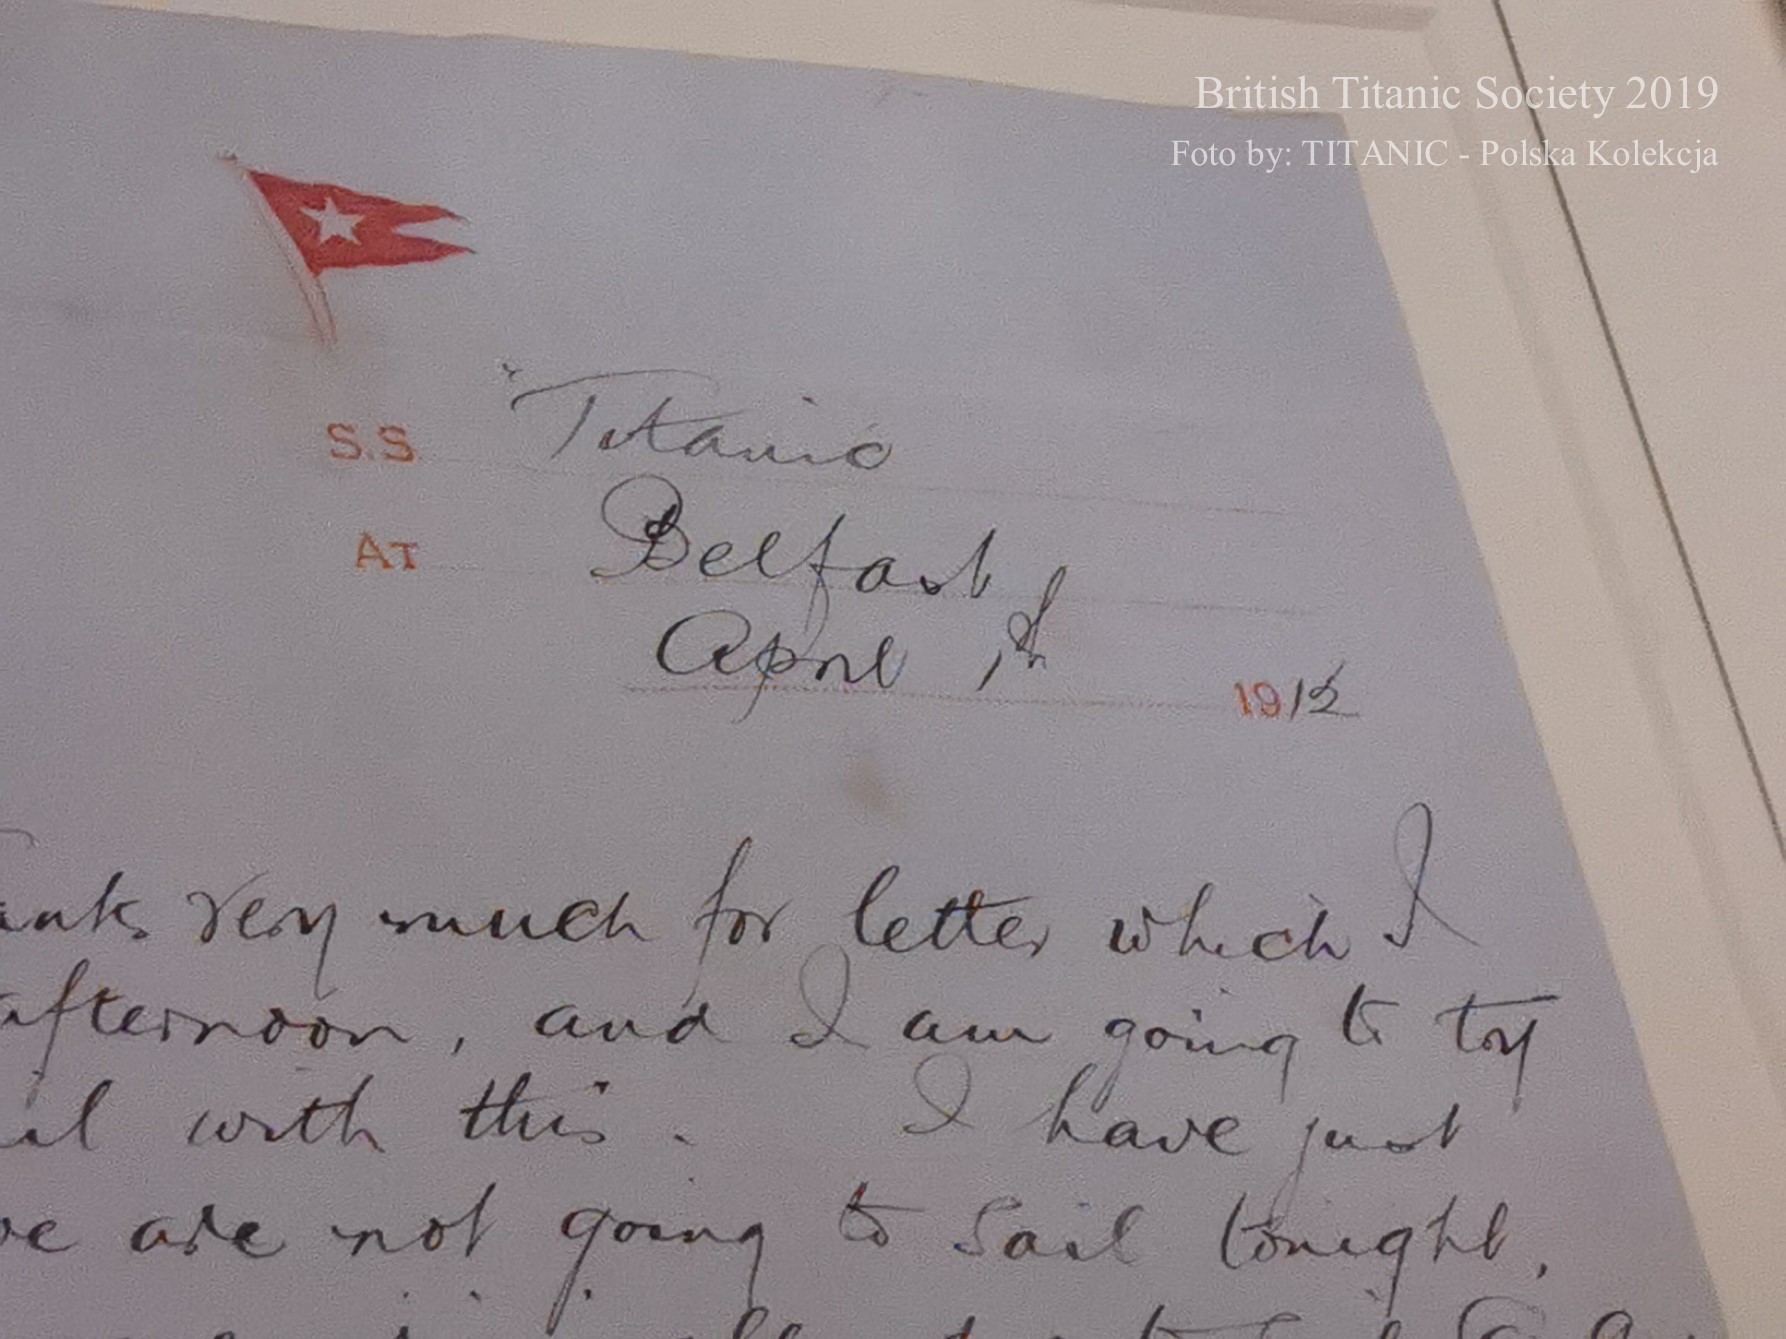 British Titanic Society 2019
Foto by: TITANIC - Polska Kolekcja
S.S "Titanic
AT Belfast
April 1st 1912
very much for letter which I
afternoon, and I am going to try
with this. I have just
are not going to sail tonight,